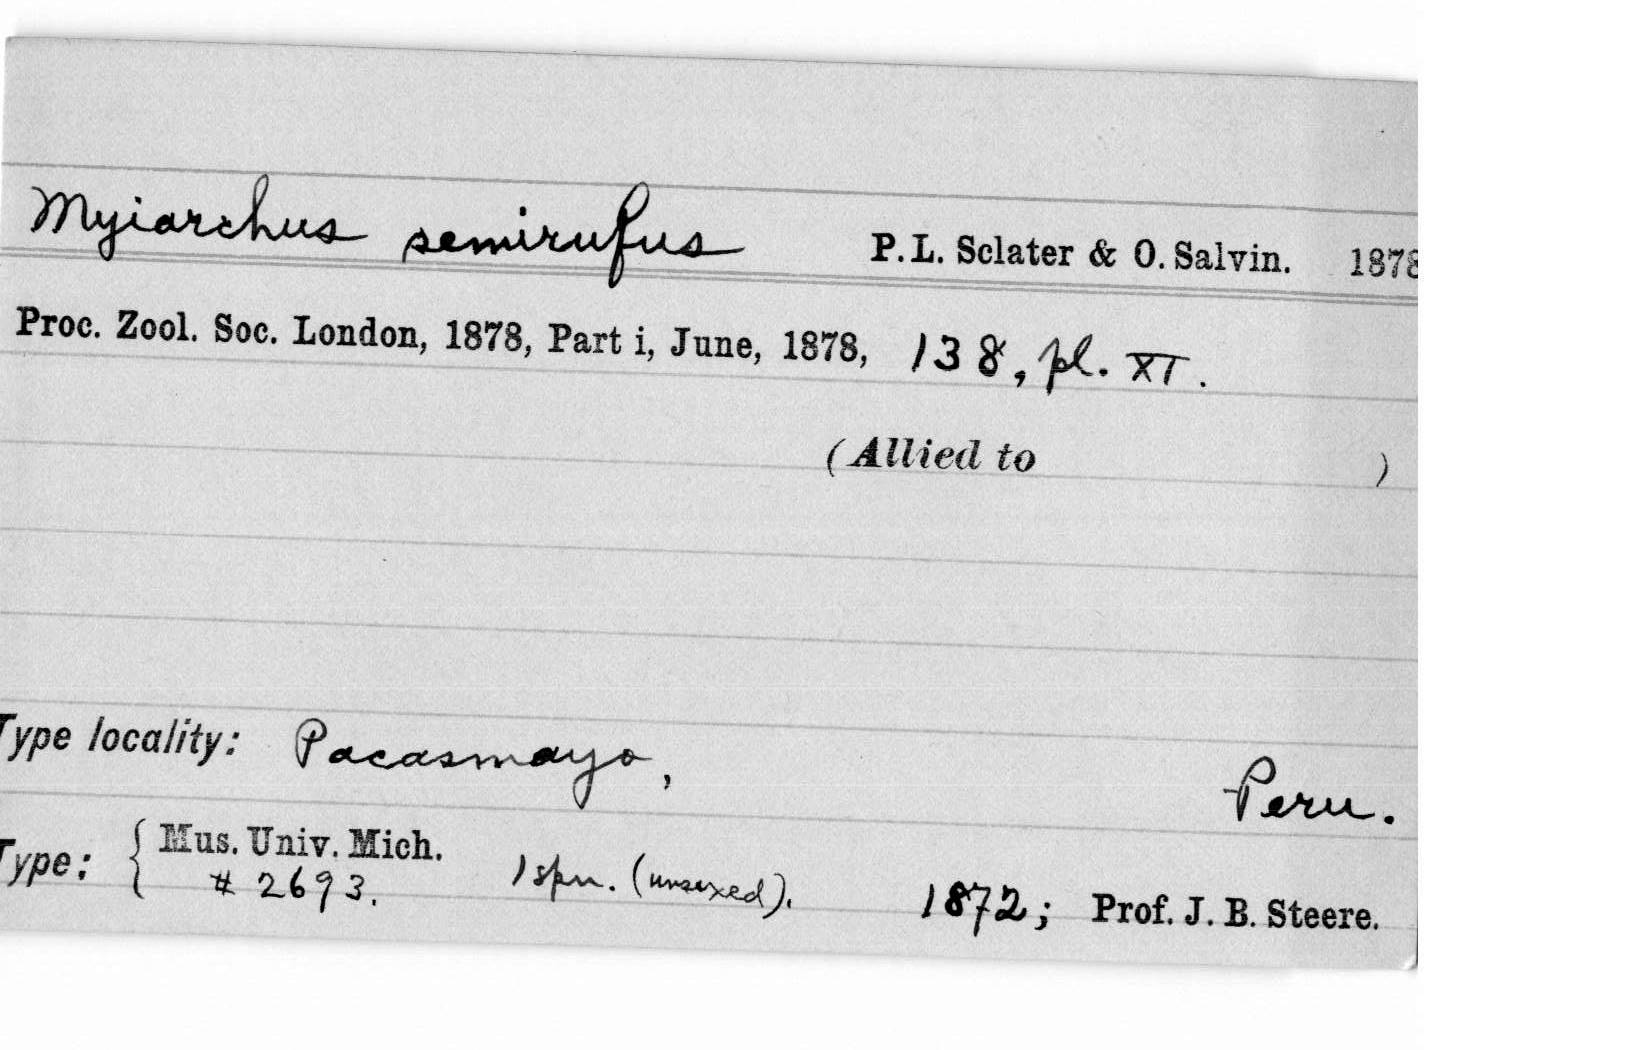 Myiarchus semirufus P. L. Sclater & O. Salvin. 1878
Proc. Zool. Soc. London, 1878, Part i, June, 1878, 138, pl. XI.
(Allied to )
Type locality: Pacasmayo, Peru.
Type: { Mus. Univ. Mich.
# 2693. 1 spn. (unsexed). 1872; Prof. J. B. Steere.